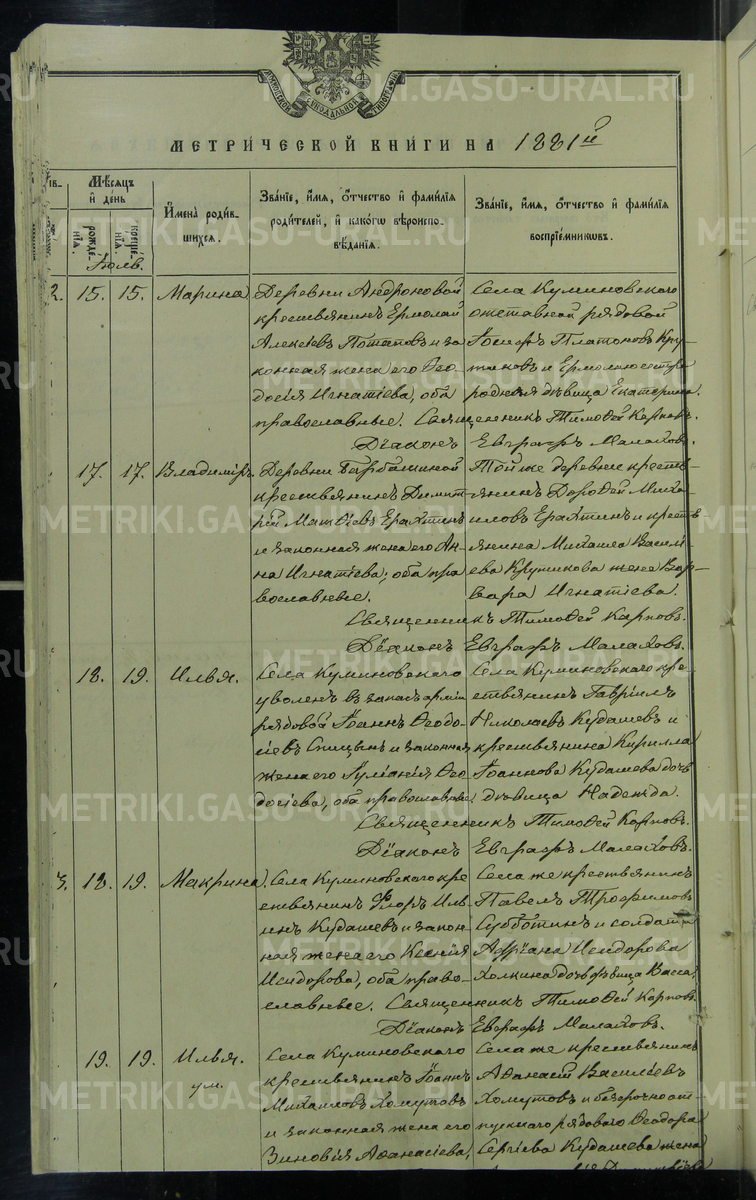 МОСКОВСКОЙ СѴНОДАЛЬНОЙ ТИПОГРАФІИ
МЕТРИЧЕСКОЙ КНИГИ НА 1881й
Мѣсяцъ и день
рожденія.
крещенія.
Имена родившихся.
Званіе, имя, отчество и фамилія родителей, и какого вѣроисповѣданія.
Званіе, имя, отчество и фамилія воспріемниковъ.
Іюль.
2. 15. 15. Марина
Деревни Андроновой
крестьянинъ Ермолай
Алексіевъ Потаповъ и за
конная жена его Ѳео
досія Игнатіева, оба
православные.
Села Куминовского
отставной рядовой
Іосифъ Платоновъ Кру
жиковъ и Ермолаю сестра
родная дѣвица Екатерина.
Священникъ Тимоѳей Карповъ.
Діаконъ Евграфъ Малаховъ.
17. 17. Владиміръ.
Деревни
крестьянинъ Димит
рій Матвіевъ Ерахтинъ
и законная жена его Ан
на Игнатіева, оба пра
вославные.
Той же деревни кресть
янинъ Дороѳей Миха
иловъ Ерахтинъ и кресть
янина Михаила Василі
ева Кружикова жена Вар
вара Игнатіева.
Священникъ Тимоѳей Карповъ.
Діаконъ Евграфъ Малаховъ.
18. 19. Илья.
Села Куминовского
уволен. в запасъ арміи
рядовой Іоаннъ Ѳеодо
сіевъ Спицынъ и законная
жена его Іуліанія Ѳео
досіева, оба православные.
Села Куминовского кре
стьянинъ Гавріилъ
Николаевъ Кудашевъ и
крестьянина Кирилла
Іоаннова Кудашева дочь
дѣвица Надежда.
Священникъ Тимоѳей Карповъ.
Діаконъ Евграфъ Малаховъ.
3. 18. 19. Макрина.
Села Куминовского кре
стьянинъ Флоръ Иль
инъ Кудашевъ и закон
ная жена его Ксенія
Исидорова, оба право
славные.
Села же крестьянинъ
Павелъ Трофимовъ
Субботинъ и солдата
Адріана Исидорова
Холкина дочь дѣвица Васса
Священникъ Тимоѳей Карповъ.
Діаконъ Евграфъ Малаховъ.
19. 19. Илья.
ум.
Села Куминовского
крестьянинъ Іоаннъ
Михаиловъ Хомутовъ
и законная жена его
Зиновія Аѳанасіева,
Села же крестьянинъ
Аѳанасій Василіевъ
Хомутовъ и безсрочноот
пускного рядового Ѳеодора
Сергіева Кудашева жена
METRIKI.GASO-URAL.RU